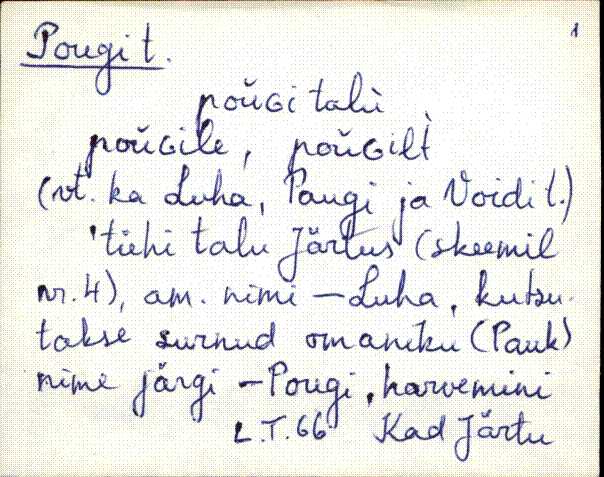 Pougi t.
1
poŭGi talù
poŭGile, poŭGilt̀
(vt. ka Luha, Paugi ja Voidi t.)
'tühi talu Järtus (skeemil
nr. 4), am. nimi – Luha, kutsu-
takse surnud omaniku (Pauk)
nime järgi – Pougi, harvemini
L.T. 66 Kad Järtu